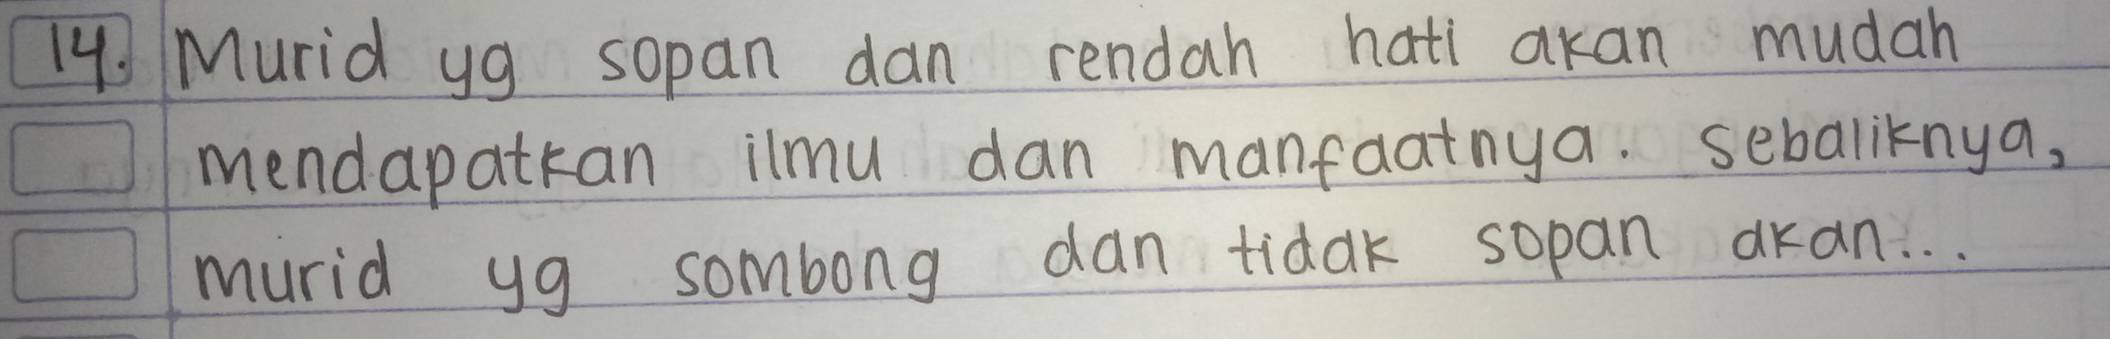 14. Murid yg sopan dan rendah hati akan mudah
mendapatkan ilmu dan manfaatnya. sebaliknya,
murid yg sombong dan tidak sopan akan...